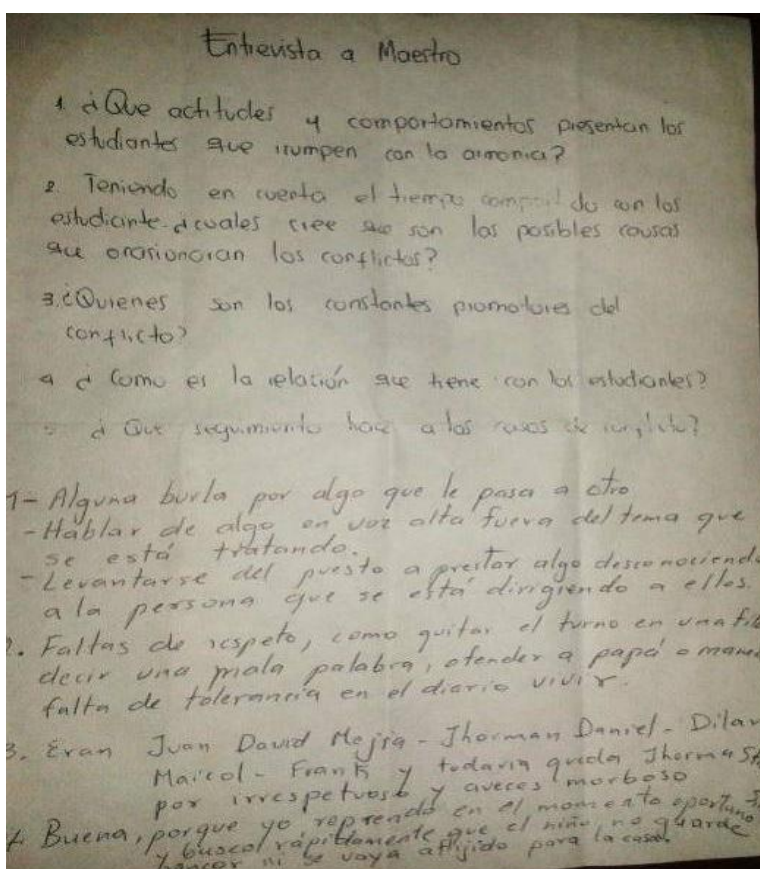 Entrevista a Maestro
1 ¿Que actitudes y comportamientos presentan los
estudiantes que irrumpen con la armonia?
2. Teniendo en cuenta el tiempo compartido con los
estudiante. ¿cuales cree que son las posibles causas
que orasionaran los conflictos?
3. ¿Quienes son los constantes promotores del
conflicto?
4 ¿Como es la relación que tiene con los estudiantes?
5 ¿Que seguimiento hace a los casos de conflicto?
1- Alguna burla por algo que le pasa a otro
- Hablar de algo en voz alta fuera del tema que
se está tratando.
- Levantarse del puesto a prestar algo desconociendo
a la persona que se está dirigiendo a ellos.
2. Faltas de respeto, como quitar el turno en una
decir una mala palabra, ofender a papá o
falta de tolerancia en el diario vivir.
3. Eran Juan David Mejia - Jhorman Daniel - Dilan
Maicol - Frank y todavia queda
por irrespetuoso y aveces morboso
4 Buena, porque yo reprendo en el momento oportuno
y busco rápidamente que el niño no guarde
ni se vaya aflijido para la casa.